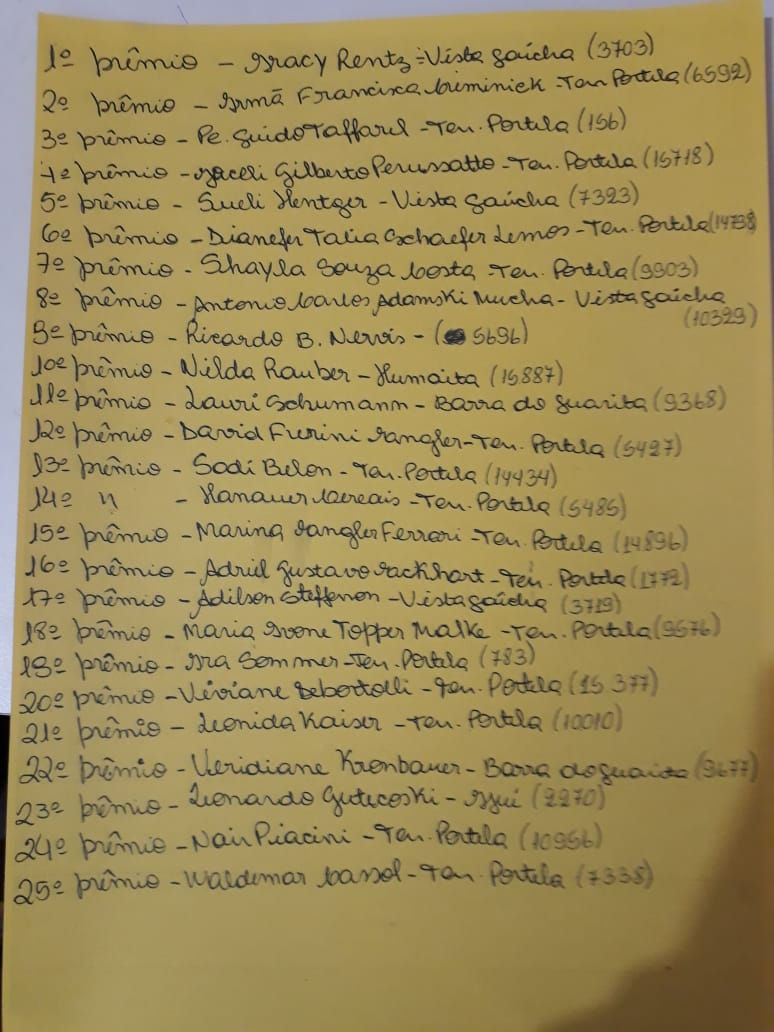 1º prêmio - Iracy Rentz - Vista Gaúcha (3703)
2º prêmio - Irmã Francisca Criminiek - Ten Portela (6592)
3º prêmio - Pe. Guido Taffarel - Ten. Portela (156)
4º prêmio - Jaceli Gilberto Perussatto - Ten. Portela (15718)
5º prêmio - Sueli Hentger - Vista Gaúcha (7323)
6º prêmio - Dianefer Talia Schaefer Lemos - Ten. Portela (14738)
7º prêmio - Shayla Souza Costa - Ten. Portela (9903)
8º prêmio - Antonio Carlos Adamski Mucha - Vista Gaúcha
(10329)
9º prêmio - Ricardo B. Nervis - (5696)
10º prêmio - Nilda Rauber - Humaita (15887)
11º prêmio - Lauri Schumann - Barra do Guarita (9368)
12º prêmio - David Furini Jangler - Ten. Portela (5427)
13º prêmio - Sadi Belon - Ten. Portela (14434)
14º " - Hanauer Cereais - Ten. Portela (5485)
15º prêmio - Marina Jangler Ferrari - Ten. Portela (14896)
16º prêmio - Adriel Gustavo Jackhart - Ten. Portela (1772)
17º prêmio - Adilson Steffenon - Vista Gaúcha (3719)
18º prêmio - Maria Ivone Topper Malke - Ten. Portela (9576)
19º prêmio - Ira Sommer - Ten. Portela (783)
20º prêmio - Viviane Debortolli - Ten. Portela (15.377)
21º prêmio - Leonida Kaiser - Ten. Portela (10010)
22º prêmio - Veridiane Kronbauer - Barra do Guarita (9677)
23º prêmio - Leonardo Gutecoski - Ijuí (2270)
24º prêmio - Nair Piacini - Ten. Portela (10956)
25º prêmio - Waldemar Cassol - Ten. Portela (7338)